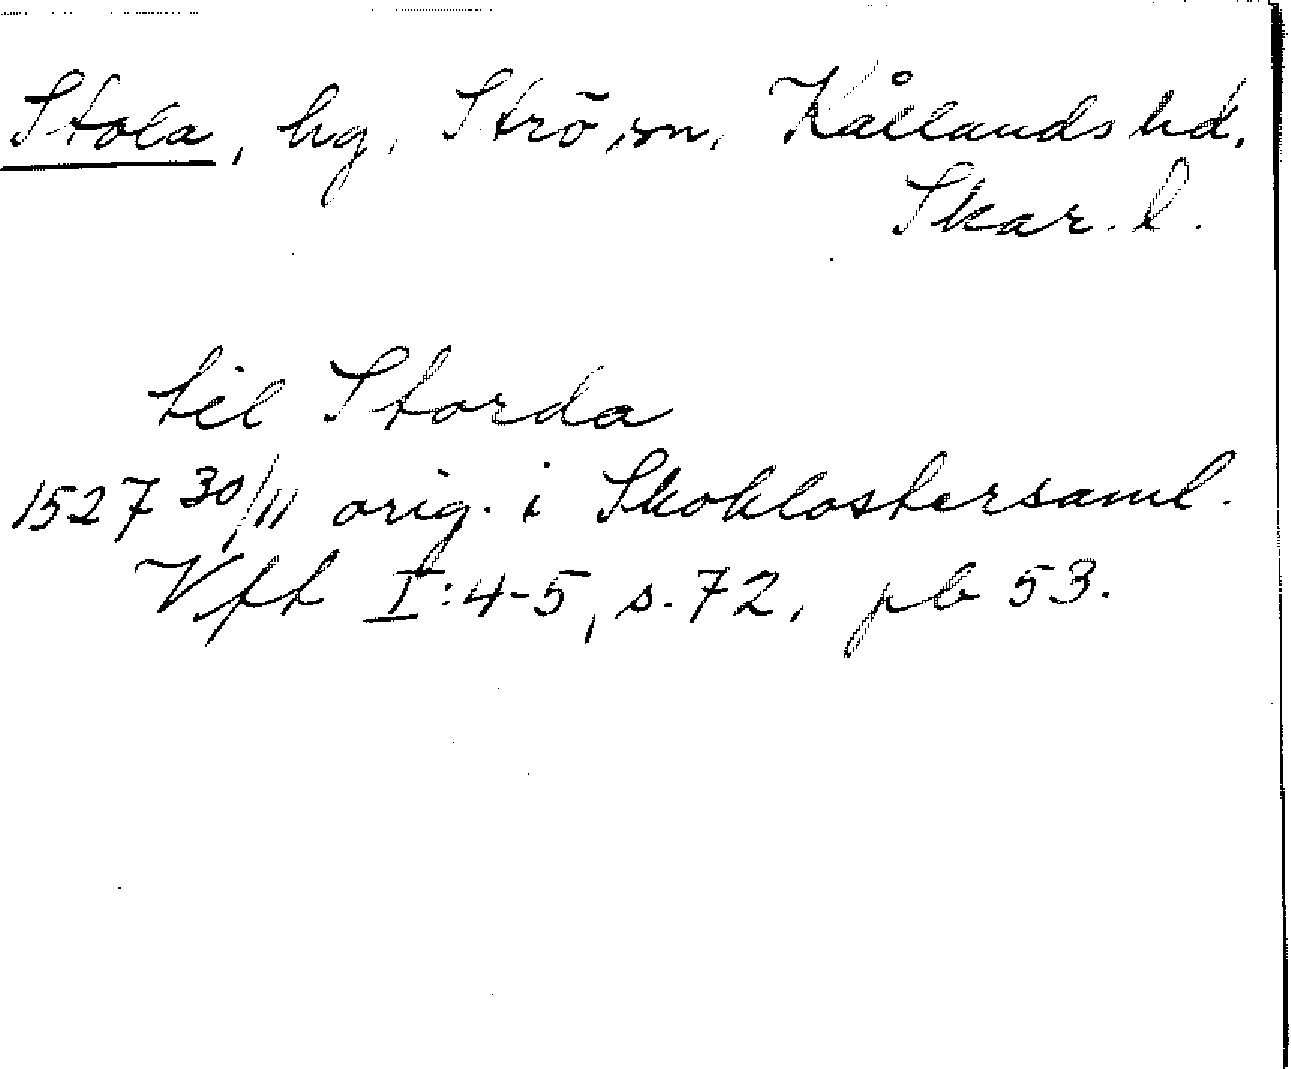 Stola, hg, Strö sn, Kållands hd.
Skar. l.
til Storda
1527 30/11 orig. i Skoklostersaml.
Vfft I:4-5, s. 72, pb 53.